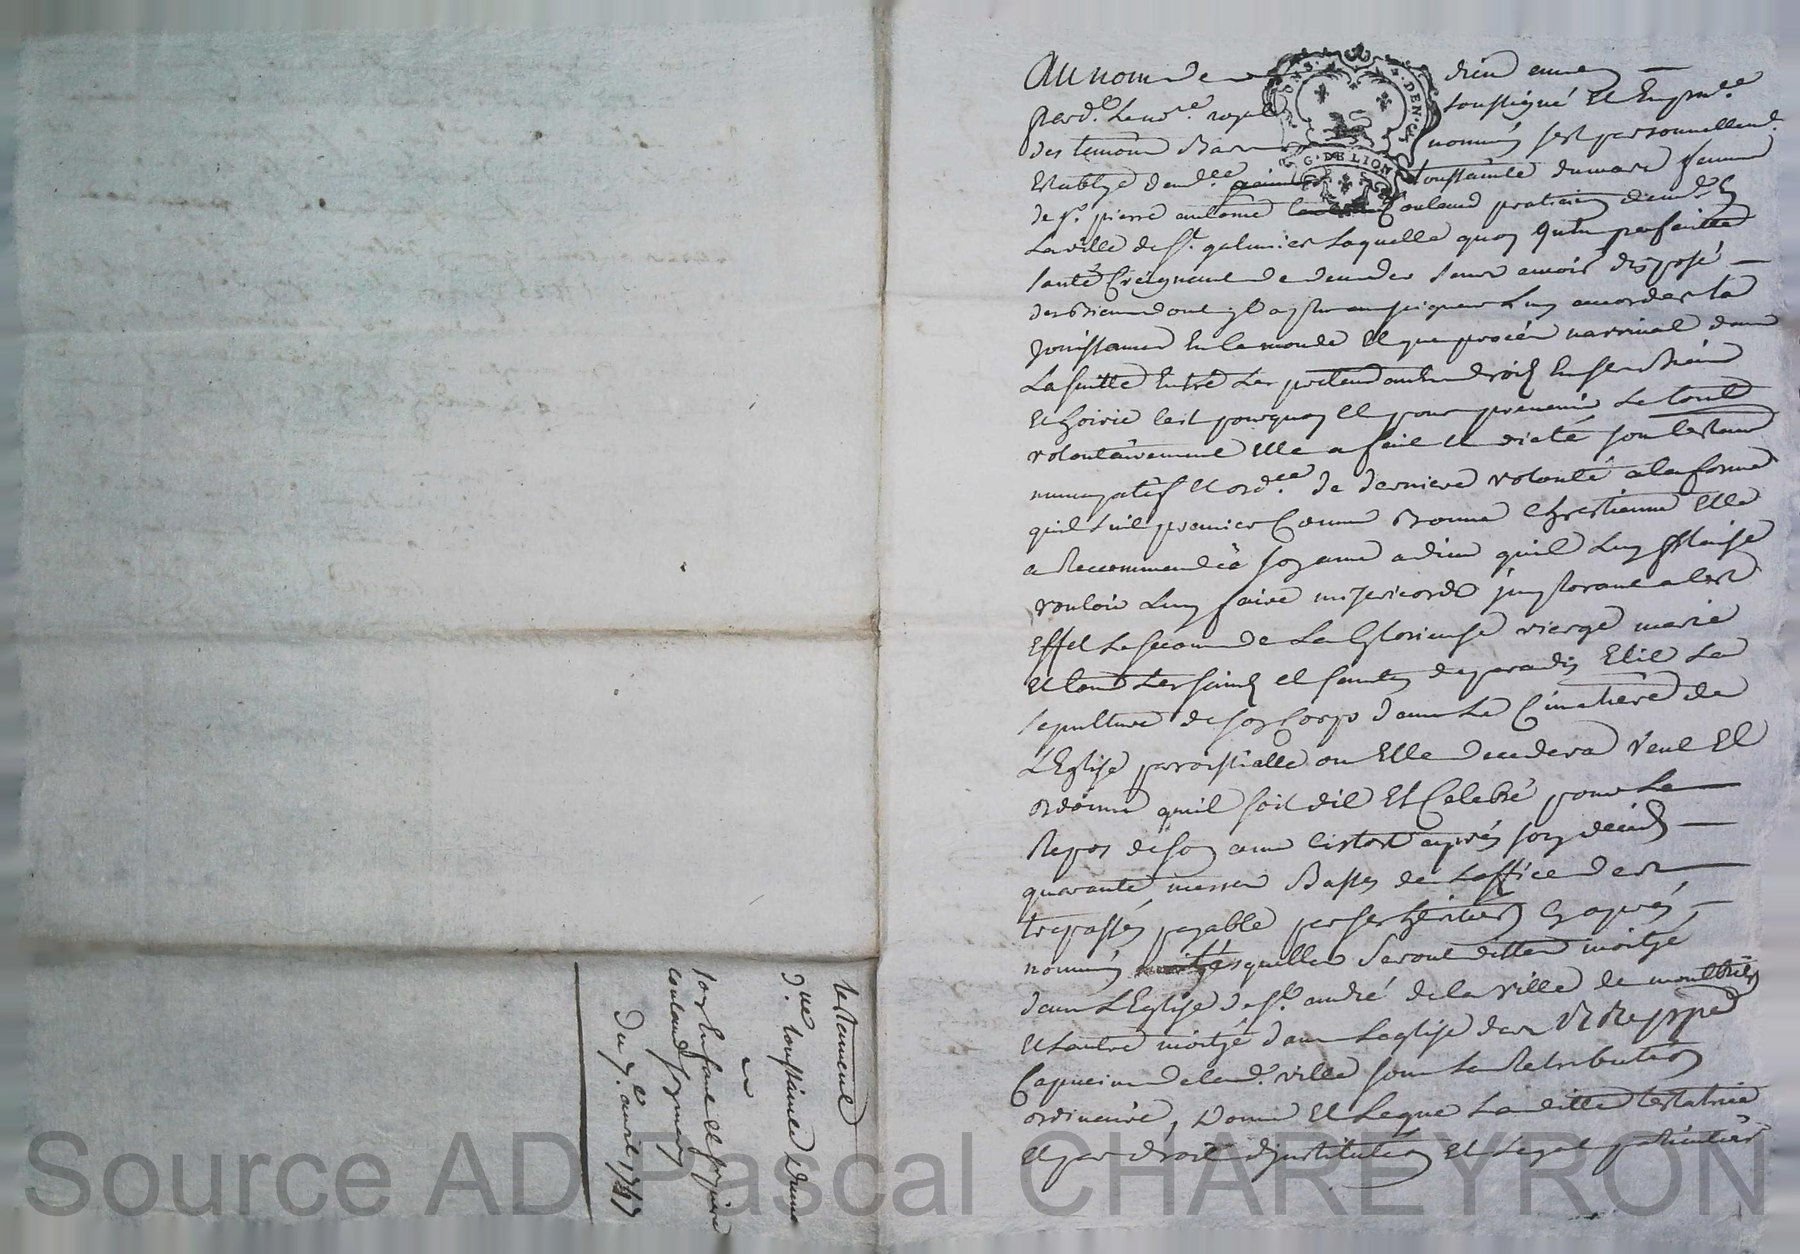 Au nom de dieu amen
pard.t le no.re royal soussigné Et En pnce
des temoins Bas nommés fut personnellem.t
Establye dem.lle toussainte dumas femme
de s.r pierre antoine Couland praticien
la ville de st. galmier laquelle quoy qu'en parfaitte
santé Creignant de deceder sans avoir disposé
des Biens dont il a plu au seigneur luy accorder la
Jouissance En ce monde Et que procés n'arrivat dans
la suitte Entre les pretendants droits En ses Biens
Et hoirie c'est pourquoy Et pour prevenir le tout
volontairement Elle a fait Et dicté son testam.t
nuncupatif Et ord.ce de derniere volonté a la forme
quil suit premier Comme Bonne Chrestienne Elle
a Recommendé son ame a dieu quil luy plaise
vouloir luy faire misericorde implorant a cest
Effet le secour de la Glorieuse vierge marie
Et tous les saints et saintes du paradis Elit la
sepulture de son Corps dans le Cimetiere de
L'Eglise parroissialle ou Elle decedera veut Et
ordonne quil soit dit Et Celebré pour le
Repos de son ame cistost aprés son décés
quarante messes Basses de L'office des
trepassés payable par ses héritiers cy aprés
nommés lesquelles seront dittes moitjé
dans L'Eglise de st. andré de la ville de montbrison
Et l'autre moitjé dans L'eglise des RR peres
Capucins de lad. ville sous la Retribution
ordinaire, Donne Et Legue la ditte testatrice
Et par droit d'institution Et Legat particulier
testament
d.lle toussainte Dumas
son Enfant Et
couland
Du 7.e avril 1747
G. DE LION
Source AD Pascal CHAREYRON